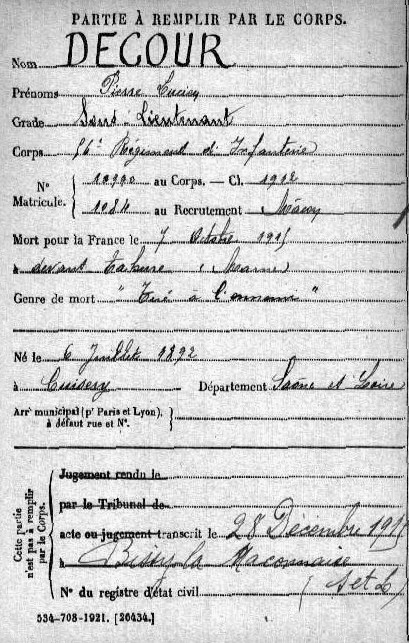 PARTIE À REMPLIR PAR LE CORPS.
Nom DECOUR
Prénoms Pierre Lucien
Grade Sous-Lieutenant
Corps 56e Régiment d'Infanterie
N° Matricule. { au Corps. — Cl. 1912
1084 au Recrutement Mâcon
Mort pour la France le 7 Octobre 1915
à devant Tahure (Marne)
Genre de mort "Tué à l'ennemi"
Né le 6 Juillet 1892
à Cuisery Département Saône et Loire
Arrt municipal (pr Paris et Lyon),
à défaut rue et N°.
Cette partie n'est pas à remplir par le Corps.
Jugement rendu le
par le Tribunal de
acte ou jugement transcrit le 28 Décembre 1915
à Bissy la Maconnaise
N° du registre d'état civil (S et L)
534-708-1921. [26434.]